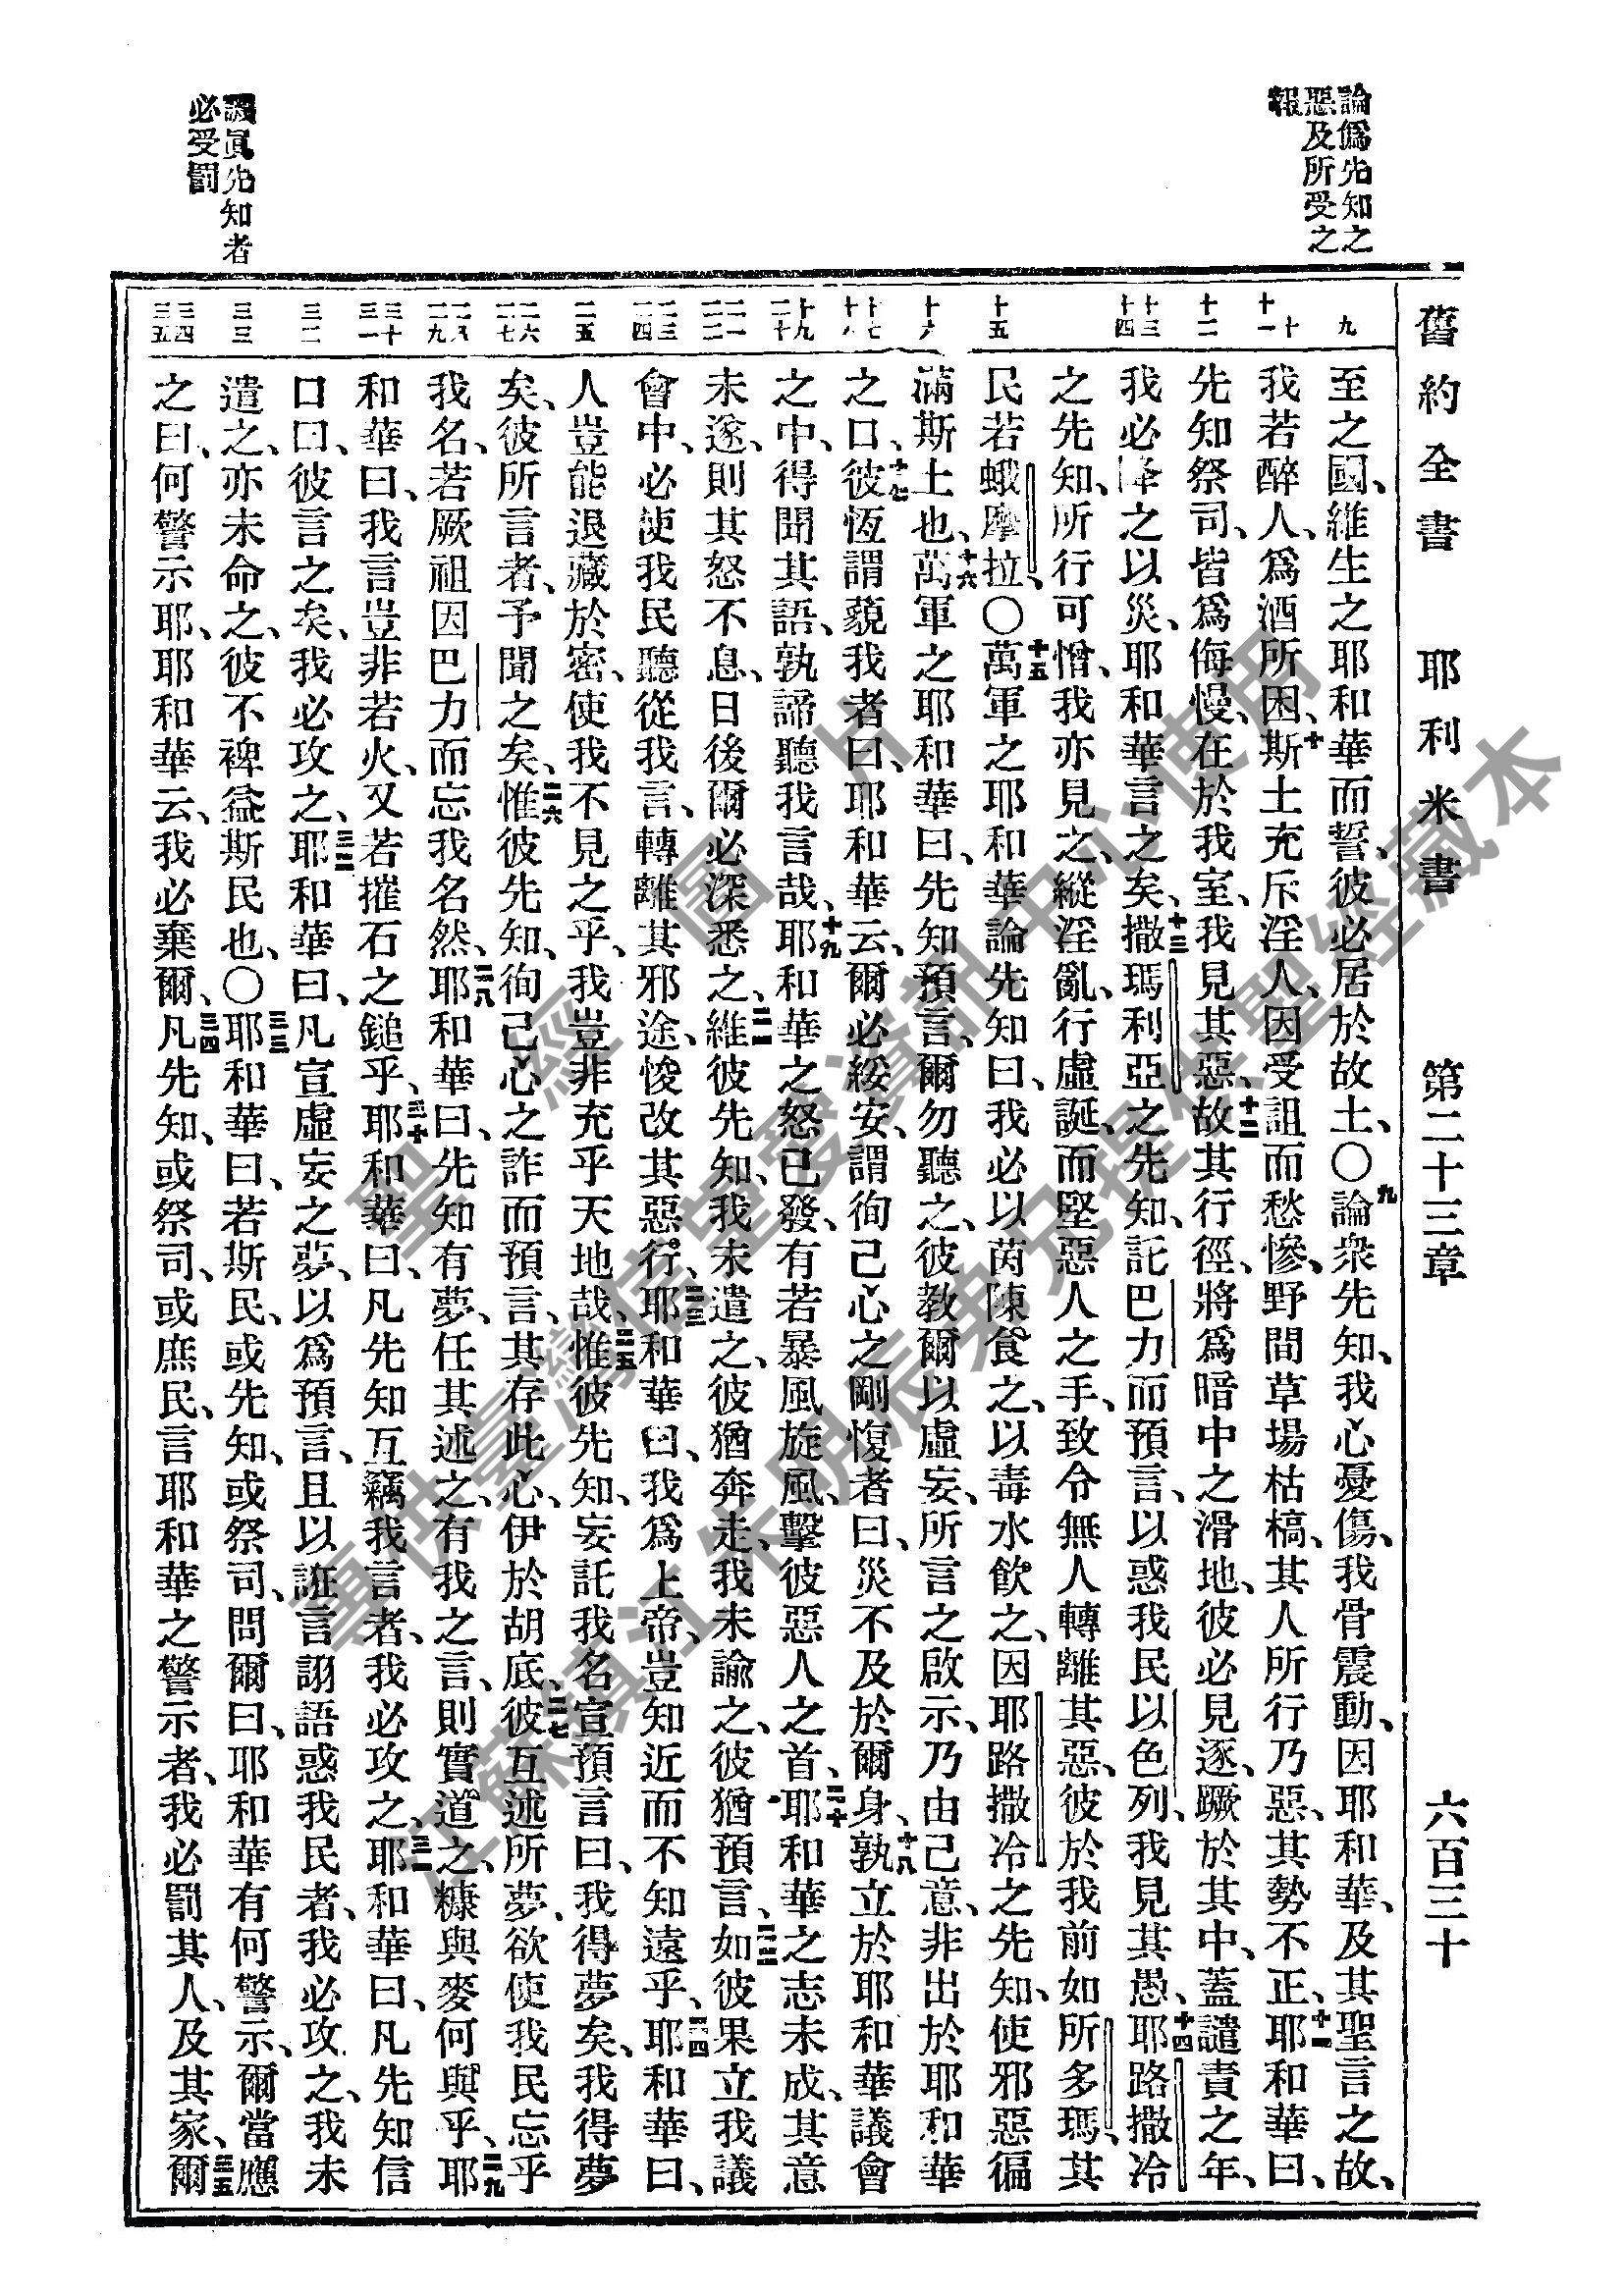 舊約全書　耶利米書　第二十三章　六百三十
論僞先知之
惡及所受之
報
眞先知者
必受罰
九
十
十一
十二
十三
十四
十五
十六
十七
十八
十九
二十
二一
二二
二三
二四
二五
二六
二七
二八
二九
三十
三一
三二
三三
三四
三五
至之國、維生之耶和華而誓、彼必居於故土、〇九論衆先知、我心憂傷、我骨震動、因耶和華、及其聖言之故、
我若醉人、爲酒所困、十斯土充斥淫人、因受詛而愁慘、野間草場枯槁、其人所行乃惡、其勢不正、十一耶和華曰、
先知祭司、皆爲侮慢、在於我室、我見其惡、十二故其行徑、將爲暗中之滑地、彼必見逐、蹶於其中、蓋譴責之年、
我必降之以災、耶和華言之矣、十三撒瑪利亞之先知、託巴力而預言、以惑我民以色列、我見其愚、十四耶路撒冷
之先知、所行可憎、我亦見之、縱淫亂、行虛誕、而堅惡人之手、致令無人轉離其惡、彼於我前如所多瑪、其
民若蛾摩拉、〇十五萬軍之耶和華論先知曰、我必以茵陳食之、以毒水飲之、因耶路撒冷之先知、使邪惡徧
滿斯土也、十六萬軍之耶和華曰、先知預言、爾勿聽之、彼教爾以虛妄、所言之啟示、乃由己意、非出於耶和華
之口、十七彼恆謂藐我者曰、耶和華云、爾必綏安、謂徇己心之剛愎者曰、災不及於爾身、十八孰立於耶和華議會
之中、得聞其語、孰諦聽我言哉、十九耶和華之怒已發、有若暴風旋風、擊彼惡人之首、二十耶和華之志未成、其意
未遂、則其怒不息、日後爾必深悉之、二一維彼先知、我未遣之、彼猶奔走、我未諭之、彼猶預言、二二如彼果立我議
會中、必使我民聽從我言、轉離其邪途、悛改其惡行、二三耶和華曰、我爲上帝、豈知近而不知遠乎、二四耶和華曰、
人豈能退藏於密、使我不見之乎、我豈非充乎天地哉、二五惟彼先知、妄託我名宣預言曰、我得夢矣、我得夢
矣、彼所言者、予聞之矣、二六惟彼先知、徇己心之詐而預言、其存此心、伊於胡底、二七彼互述所夢、欲使我民忘乎
我名、若厥祖因巴力而忘我名然、二八耶和華曰、先知有夢、任其述之、有我之言、則實道之、糠與麥何與乎、二九耶
和華曰、我言豈非若火、又若摧石之鎚乎、三十耶和華曰、凡先知互竊我言者、我必攻之、三一耶和華曰、凡先知信
口曰、彼言之矣、我必攻之、三二耶和華曰、凡宣虛妄之夢、以爲預言、且以誑言詡語惑我民者、我必攻之、我未
遣之、亦未命之、彼不裨益斯民也、〇三三耶和華曰、若斯民、或先知、或祭司、問爾曰、耶和華有何警示、爾當應
之曰、何警示耶、耶和華云、我必棄爾、三四凡先知、或祭司、或庶民、言耶和華之警示者、我必罰其人、及其家、三五爾
聖經圖片
專供臺灣信望愛資訊中心使用
江蘇鎮江朱明辰弟兄提供聖經藏本